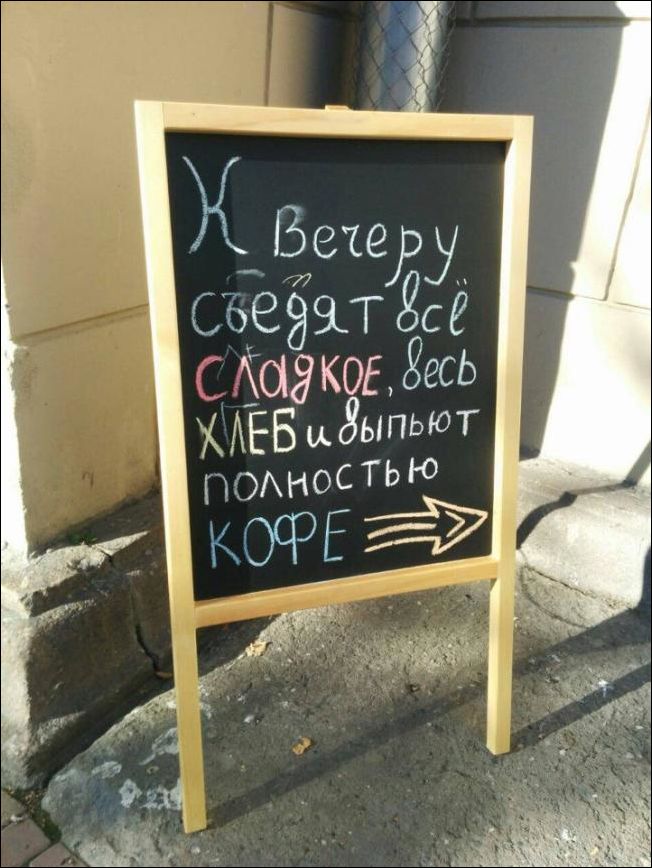 К Вечеру
съедят всё
сладкое, весь
ХЛЕБ и выпьют
полностью
КОФЕ